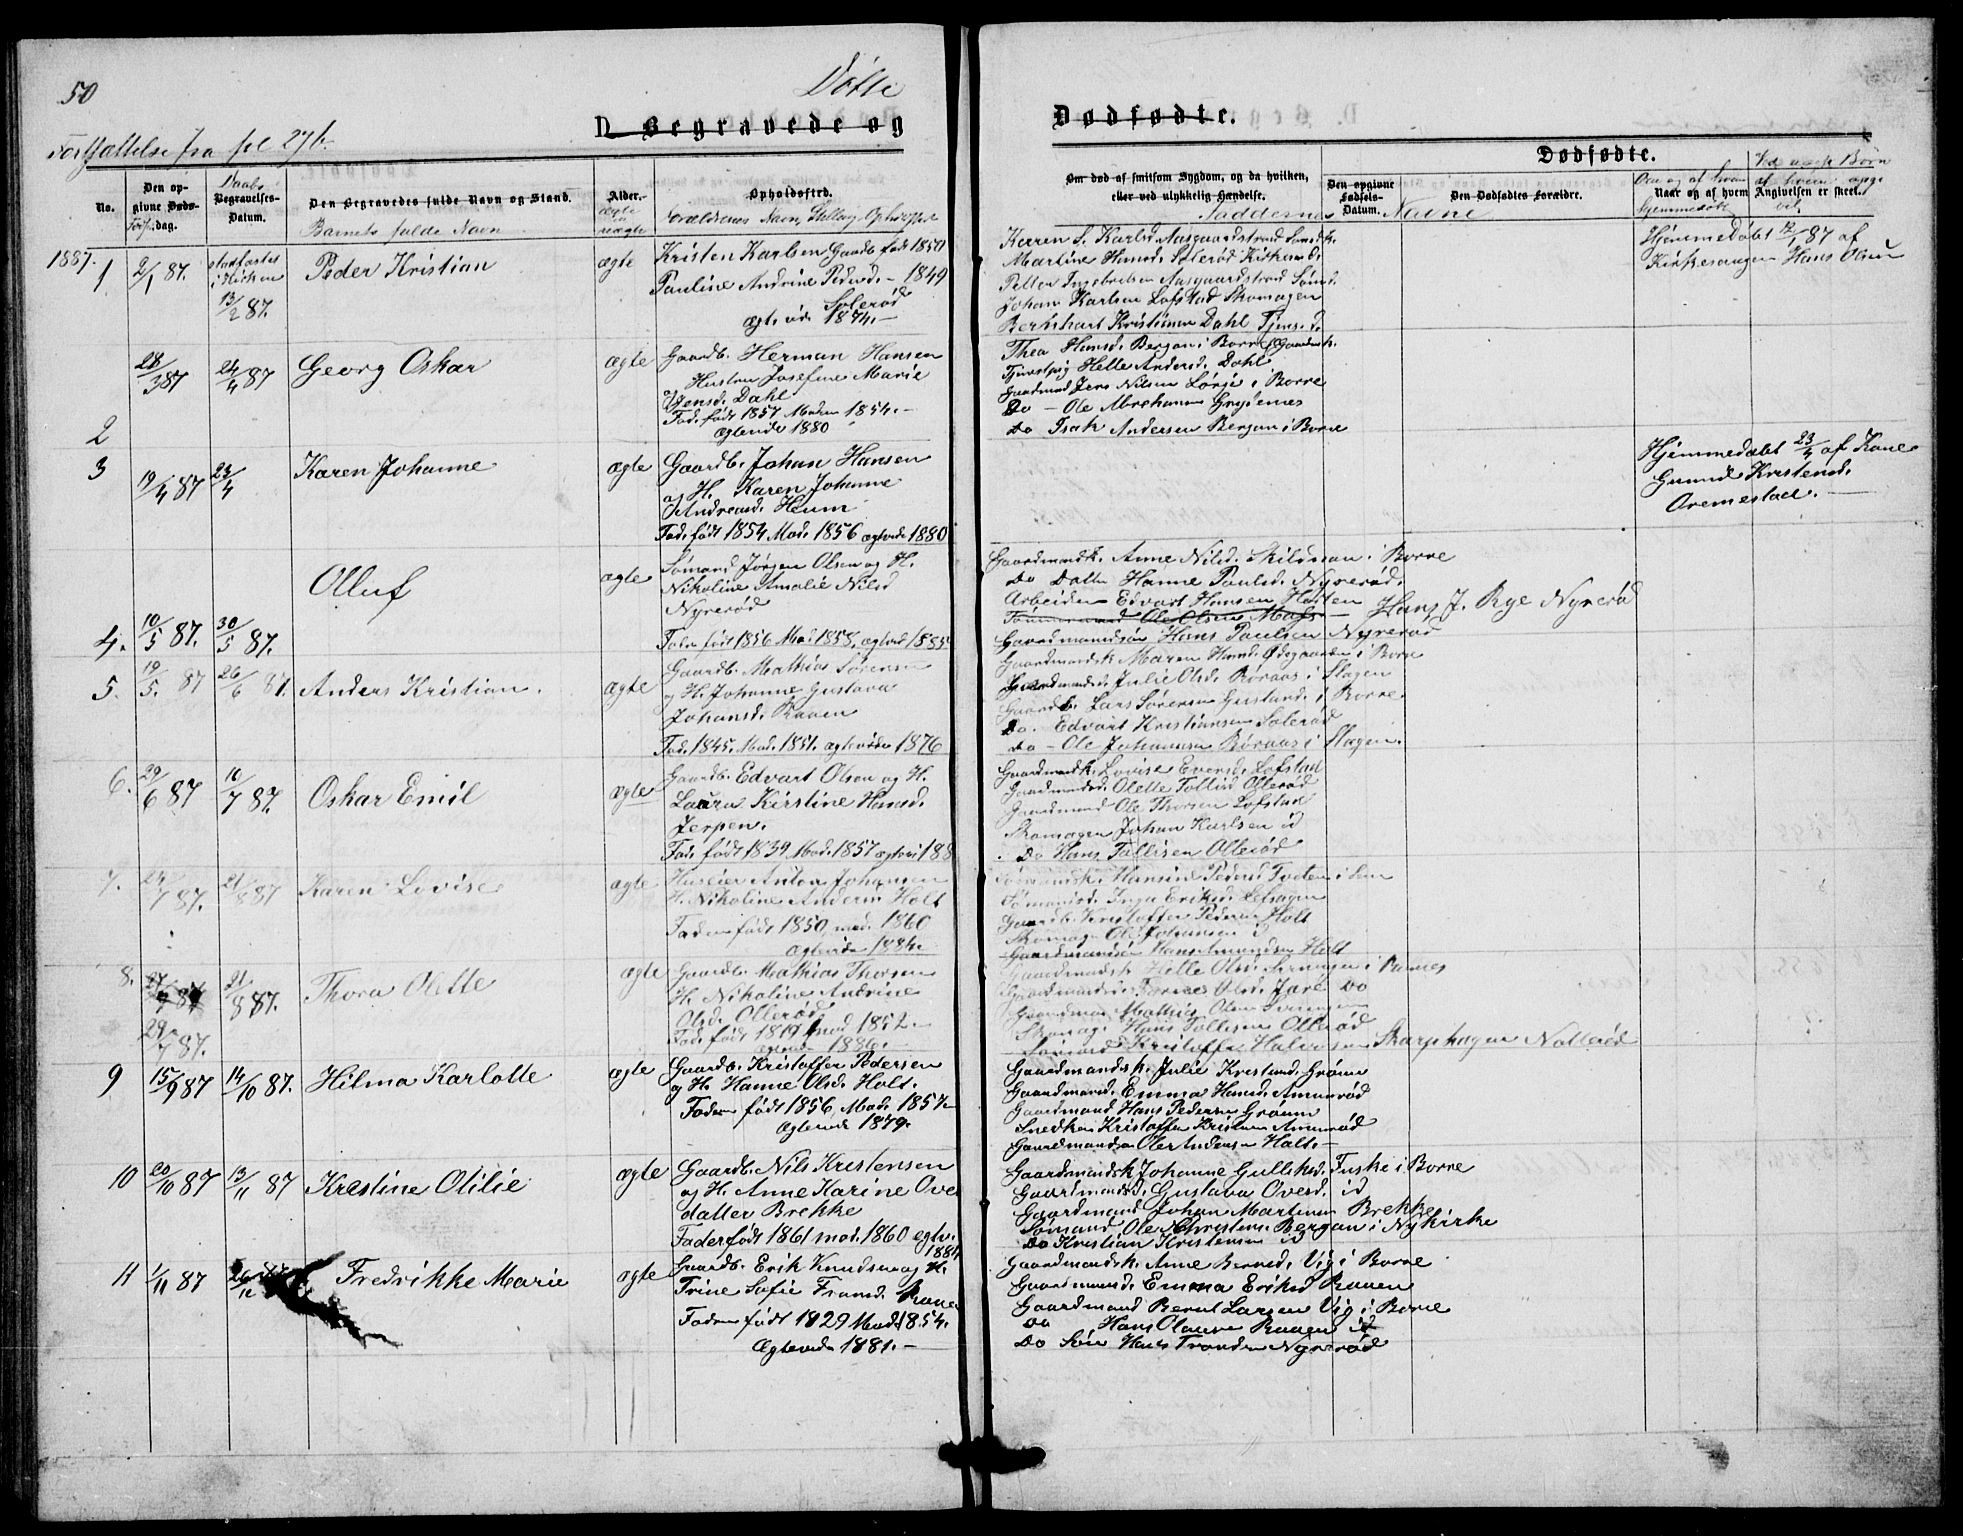 50
Døtte
Fortsættelse fra fol 27 b.
D. Begravede og
No.
Den opgivne Døds-dag.
Daabs
Begravelses-Datum.
Den Begravedes fulde Navn og Stand.
Barnets fulde Navn
Alder.
ægte
uægte
Opholdssted.
Forældrenes Navn, Stilling, Opholdssted
1887.
1
2/1 87.
stadfæstet
i Kirken
13/2 87.
Peder Kristian
ægte
Kristen Karlsen Gaardb. født 1850
Pauline Andrine Pedersd. - 1849
Solerød
Egtevide 1874. -
2
28/3 87
24/4 87
Georg Oskar
ægte
Gaardb. Herman Hansen
Hustru Josefine Marie
Jensd. Dahl
Fad. født 1857 Moder 1854. -
Egtevide 1880
3
19/4 87
23/4
Karen Johanne
ægte
Gaardb. Johan Hansen
og H. Karen Johanne
Andreasd. Heum
Fad. født 1854 Mod. 1856 egtevide 1880
4.
10/5 87.
30/5 87.
Olluf
ægte
Sømand Jørgen Olsen og H.
Nikoline Amalie Nilsd
Nyrerød
Fader født 1856 Mod 1858, egtevid 1885
5.
19/5 87
26/6 87.
Anders Kristian.
ægte
Gaardb. Mathias Sørensen
og H. Johanne Gustava
Johansd. Raaen
Fad. 1845. Mod. 1851. egtevide 1876
6.
29/6 87
10/7 87.
Oskar Emil
ægte
Gaardb. Edvart Olsen og H.
Laura Kirstine Hansd.
Jerpen.
Fad. født 1839 Mod. 1857 egtevi 188
7.
24/7 87.
21/8 87
Karen Lovise
ægte
Huseier Anton Johansen
H. Nikoline Andersd. Holt
Faderen født 1850, mod. 1860
Egtevide 1884.
8.
29/7 87.
21/8 87.
Thora Olette
ægte
Gaardb. Mathias Thorsen
H. Nikoline Andrine
Olsd. Ollerød
Fad. født 1819 mod 1852. -
egtevide 1886. -
9
15/9 87
14/10 87.
Hilma Karlotte
ægte
Gaardb. Kristoffer Pedersen
og H. Hanne Olsd. Holt.
Faderen født 1856, Mod. 1857
Egtevide 1879.
10
20/10 87
13/11 87
Krestine Otilie
ægte
Gaardb. Nils Krestensen
og H. Anne Karine Ove
datter Brekke
Fader født 1861 mod. 1860 egtv.
1884
11
1/11 87
Fredrikke Marie
ægte
Gaardb. Erik Knudsen og H.
Trine Sofie Fransd. Raaen
Faderen født 1829 Mod. 1854.
Egtevide 1881. -
Dødfødte.
Om død af smitsom Sygdom, og da hvilken, eller ved ulykkelig Hændelse.
Dødfødte.
Den opgivne Fødsels-Datum.
Den Dødfødtes Forældre.
Naar og af hvem
hjemmedøbt
Angivelsen er skeet.
Ved uægte Børn
af hvem opgi
vet.
Faddernes Navne
Karen S. Karlsd Aasgaardstrand Sømdk.
Martine Hansd. Solerød Kirkesd.
Petter Ingebretsen Aasgaardstrand Sømd.
Johan Karlsen Lofstad Skomager
Bernhart Kristiansen Dahl Tjened.
Hjemmedøbt 12/1 87 af
Kirkesanger Hans Olsen
Thea Hansd. Bergan i Borre Gaardmk.
Tjenestpig Helle Andersd. Dahl
Gaardmand Jens Nilsen Lørje i Borre
Do - Ole Abrahamsen Grydenes
Do Isak Andersen Bergan i Borre
Hjemmedøbt 23/4 af Kone
Gunnild Kristensd.
Oremestad. -
Gaardmandk. Anne Nilsd. Skildsaan i Borre
Do Datter Hanne Paulsd. Nyrerød.
Arbeider Edvart Hansen Høsten
Tømmermand Ole Olsen Moss
Hans J. Rye Nyrerød
Gaardmandsøn Hans Paulsen Nyrerød
Gaardmandsk Maren Hansd. Ødegaarden i Borre
Gaardmandsd. Julie Olsd. Røraas i Slagen
Gaardb. Lars Sørensen Gustand. i Borre
Do. Edvart Kristiansen Solerød
Do - Ole Johannsen Røraas i Slagen.
Gaardmandk. Lovise Eversd. Lofstad
Gaardmandsd. Olette Tollisd Ollerød
Gaardmand Ole Thorsen Lofstad
Skomager Johan Karlsen id
Do Hans Tollisen Ollerød
Sømandsk. Hansine Peders. Tveten i Sem
Sømandsd. Inga Eriksd. Lefsager
Gaardb. Kristoffer Pedersen Holt
Skomager Ole Johansen id
Gaardmandsøn Hans Amundsen Holt
Gaardmandsk Helle Olsd. Sveringen i Ramnes
Gaardmandsd. Olsd. Jarl Do
Gaardman Mathias Olsen
Skomag. Hans Tollisen Ollerød
Sømand Kristoffer Halvorsen Skarphagen Nøtterød
Gaardmandsk. Julie Krestensd. Grøm
Gaardmansd. Emma Hansd. Amunrød
Gaardmand Hans Pedersen Grøm
Snedker Kristoffer Kristiansen Amunrød
Gaardmandsøn Ole Andersen Holt. -
Gaardsmandsk Johanne Gulliksd. Fuske i Borre
Gaardmandsd. Gustava Ovesd. id
Gaardmand Johan Martinsen Brekke
Sømand Ole Christens. Bergan i Nykirke
Do Kristian Kristensen id
Gaardmandsk. Anne Berntsd. Vig i Borre
Gaardmansd. Emma Eriksd Raaen
Gaardmand Bernt Larsen Vig i Borre
Do Hans Olausen Raaen id
Do Søn Hans Trondsen Nyrerød